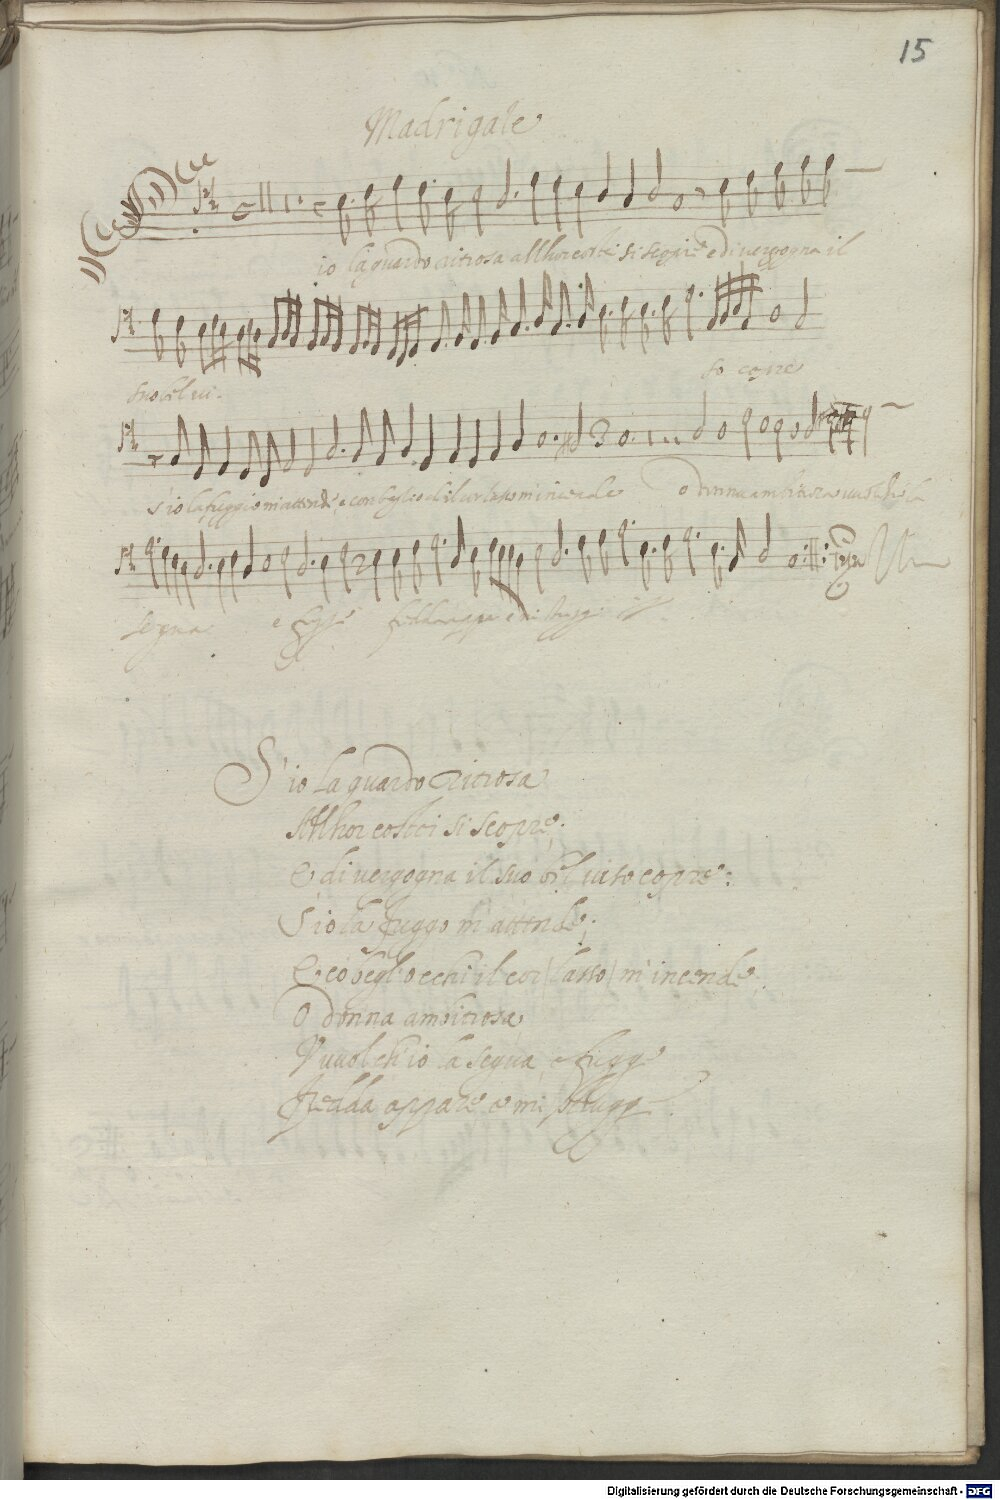 15
Madrigale
io la guardo ritrosa Allhor costei si scopre e di vergogna il
suo bel vi-
so copre
s'io la fuggo m'attende, e con begl'occhi il cor lasso m'incende o donna ambitiosa vuol ch'io la
segua e fugge fredda appar e mi strugge
S'io la guardo ritrosa
Allhor costei si scopre,
E di vergogna il suo bel viso copre:
S'io la fuggo m'attende;
E cò begl'occhi il cor (lasso) m'incende.
O donna ambitiosa
Vuol ch'io la segua, e fugge
Fredda appare e mi strugge.
Digitalisierung gefördert durch die Deutsche Forschungsgemeinschaft - DFG